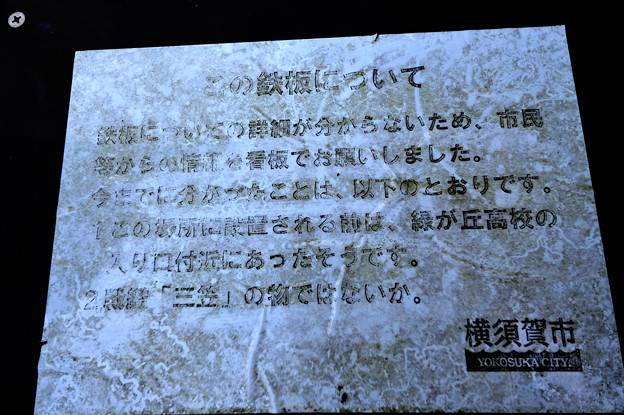 この鉄板について
鉄板についての詳細が分からないため、市民
等からの情報を看板でお願いしました。
今までに分かったことは、以下のとおりです。
1この場所に設置される前は、緑が丘高校の
入り口付近にあったそうです。
2.戦艦「三笠」の物ではないか。
横須賀市
YOKOSUKA CITY